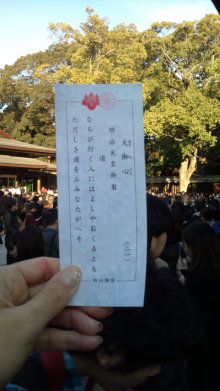 大御心
明治天皇御製
道
ならび行く人にはよしやおくるとも
ただしき道をふみなたがへそ
明治神宮